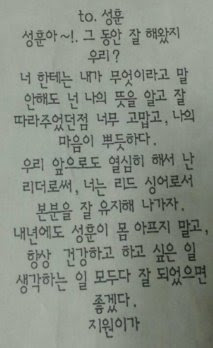 to. 성훈
성훈아~!. 그 동안 잘 해왔지
우리?
너 한테는 내가 무엇이라고 말
안해도 넌 나의 뜻을 알고 잘
따라주었던점 너무 고맙고, 나의
마음이 뿌듯하다.
우리 앞으로도 열심히 해서 난
리더로써, 너는 리드 싱어로서
본분을 잘 유지해 나가자.
내년에도 성훈이 몸 아프지 말고,
항상 건강하고 하고 싶은 일
생각하는 일 모두다 잘 되었으면
좋겠다.
지원이가